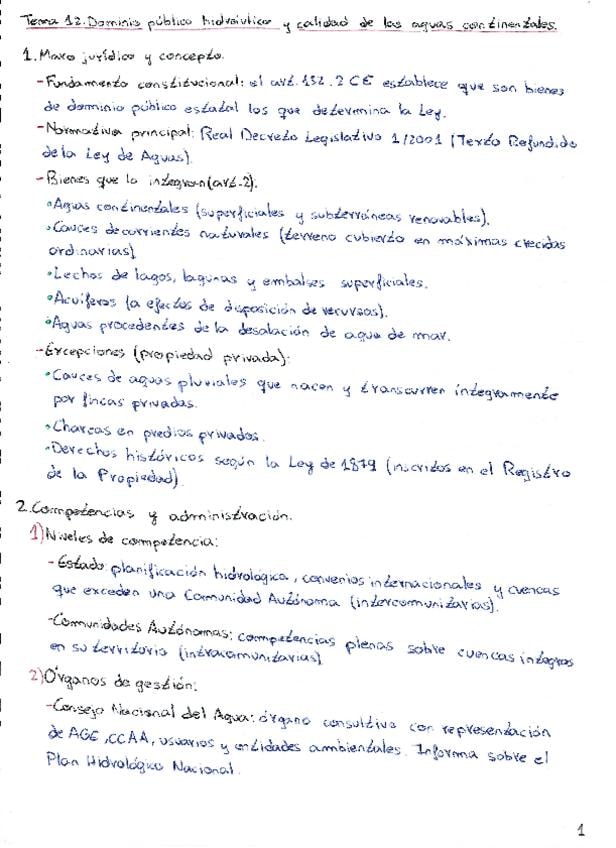 Tema 12. Dominio público hidráulico y calidad de las aguas continentales.
1. Marco jurídico y concepto.
- Fundamento constitucional: el art. 132.2 CE establece que son bienes
de dominio público estatal los que determina la Ley.
- Normativa principal: Real Decreto Legislativo 1/2001 (Texto Refundido
de la Ley de Aguas).
- Bienes que lo integran (art. 2).
• Aguas continentales (superficiales y subterráneas renovables).
• Cauces de corrientes naturales (terreno cubierto en máximas crecidas
ordinarias)
• Lechos de lagos, lagunas y embalses superficiales.
• Acuíferos (a efectos de disposición de recursos).
• Aguas procedentes de la desalación de agua de mar.
- Excepciones (propiedad privada):
• Cauces de aguas pluviales que nacen y transcurren íntegramente
por fincas privadas.
• Charcas en predios privados.
• Derechos históricos según la Ley de 1879 (inscritos en el Registro
de la Propiedad).
2. Competencias y administración.
1) Niveles de competencia:
- Estado: planificación hidrológica, convenios internacionales y cuencas
que exceden una Comunidad Autónoma (intercomunitarias).
- Comunidades Autónomas: competencias plenas sobre cuencas íntegras
en su territorio (intracomunitarias)
2) Órganos de gestión:
- Consejo Nacional del Agua: órgano consultivo con representación
de AGE, CCAA, usuarios y entidades ambientales. Informa sobre el
Plan Hidrológico Nacional.
1